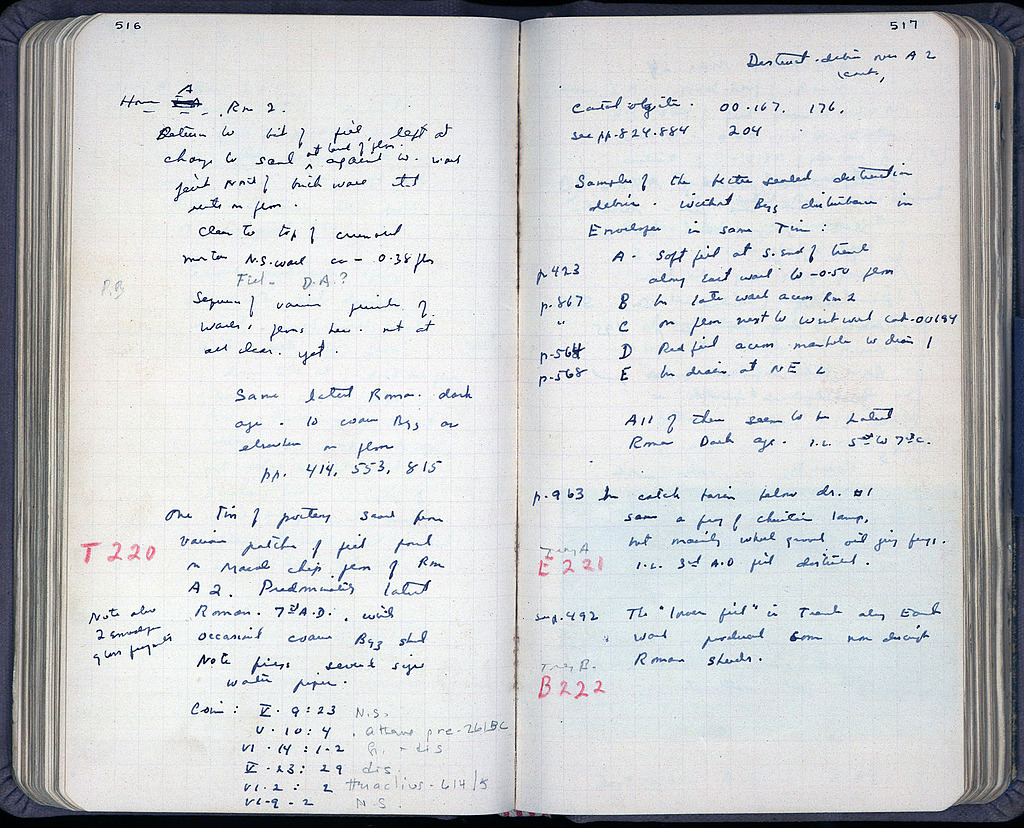 516
House A Rm 2.
Return to bit of fill, left at
change to sand at level of floor against W. wall
joint North of brick ware that
rests on floor.
Clean to top of
mortar N.S. wall ca - 0.38
Fill - D.A.?
P.B
Sequence of various periods of
walls, floors here. not at
all clear. yet.
Same latest Roman. dark
age. to coarse Byz as
elsewhere on floor
pp. 414, 553, 815
One Tin of pottery saved from
T 220
various patches of fill found
on marble chip floor of Rm
A 2. Predominately latest
Roman. 7th A.D., with
occasional coarse Byz sherd
Note also
2 envelopes
glass fragments
Note frags several
water pipes.
Coins: V. 9:23 N.S.
V. 10:4. pre-261 BC
VI. 14:1-2 Gr. + dis
V. 23:29 dis.
VI. 2: 2 Heraclius - 614/5
VI-9-2 N.S.
517
Destruct. debris over A 2
(cont,
Catal objects. 00.167. 176.
see pp. 824.884 204
Samples of the better sealed destruction
debris. without Byz disturbance in
Envelopes in same Tin:
A. Soft fill at S. end of trench
p. 423
along East wall to -0.50 floor
p. 867 B In late wall across Rm 2
" C on floor next to west wall cat. 00184
p. 564 D Red fill across manhole to drain 1
p. 568 E In drain at NE
All of them seem to be Latest
Roman Dark age. i.e. 5th to 7th C.
p. 963 In catch basin below dr. #1
some a frag of Christian lamp,
but mainly wheel ground oil jug frags.
Tray A
E 221
i.e. 3rd A.D fill disturbed.
see p. 492 The "lower fill" in Trench along East
wall produced some non descript
Roman sherds.
Tray B.
B 222